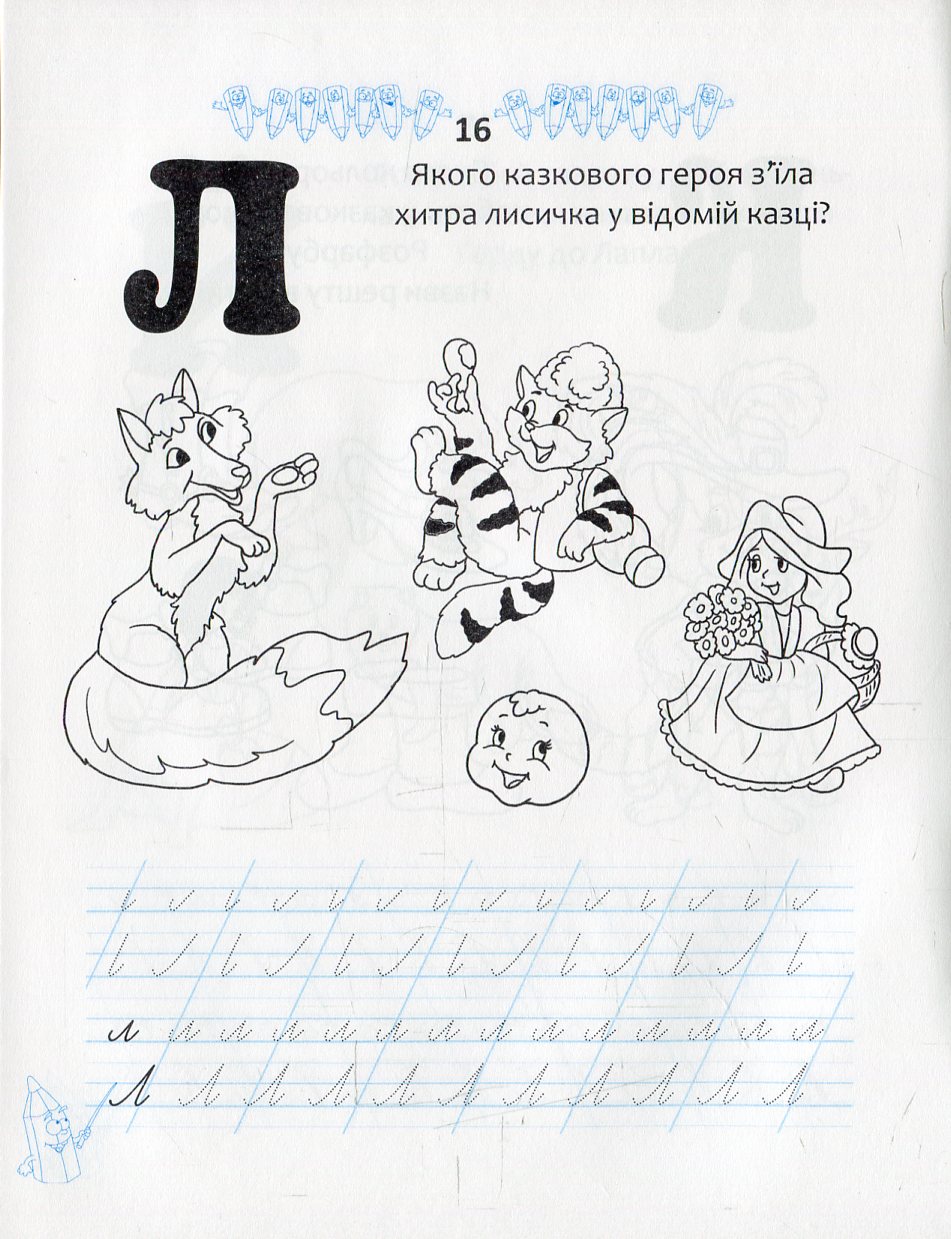 16
Л
Якого казкового героя з’їла
хитра лисичка у відомій казці?
л л л л л л л л л л л л л
Л Л Л Л Л Л Л Л Л Л Л